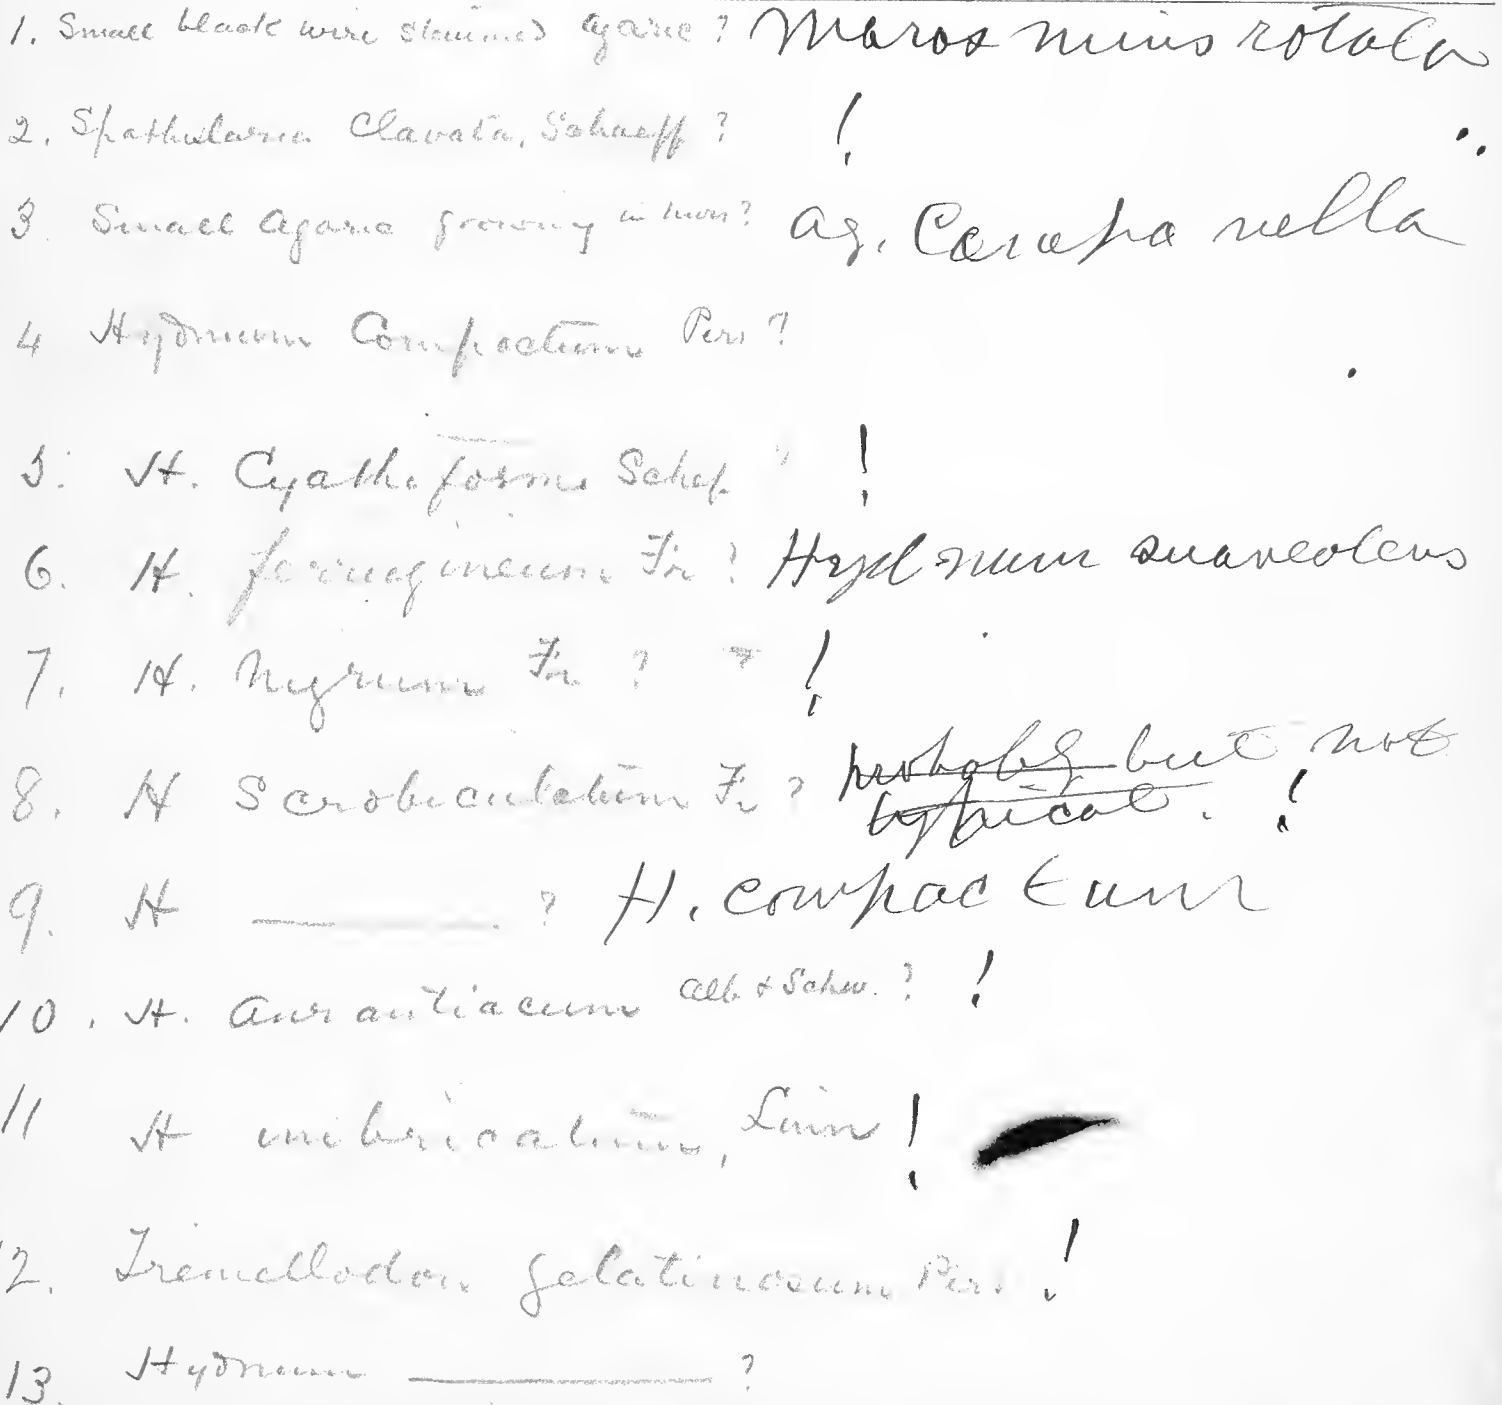 1. Small black wire stemmed agaric? Marasmius rotala
2. Spathularia Clavata, Schaeff? !
3 Small Agaric growing in moss? Ag. Campanella
4 Hydnum Compactum Pers ?
5. H. Cyathiforme Schef. " !
6. H. ferrugineum Fr ? Hydnum suaveolens
7. H. Nigrum Fr ? !
8. H Scrobiculatum Fr ? probably but not
typical. !
9. H ———. ? H. compactum
10. H. Aurantiacum Alb & Schw. ? !
11 H imbricatum, Linn !
12. Tremellodon gelatinosum Pers. !
13. Hydnum ——— ?